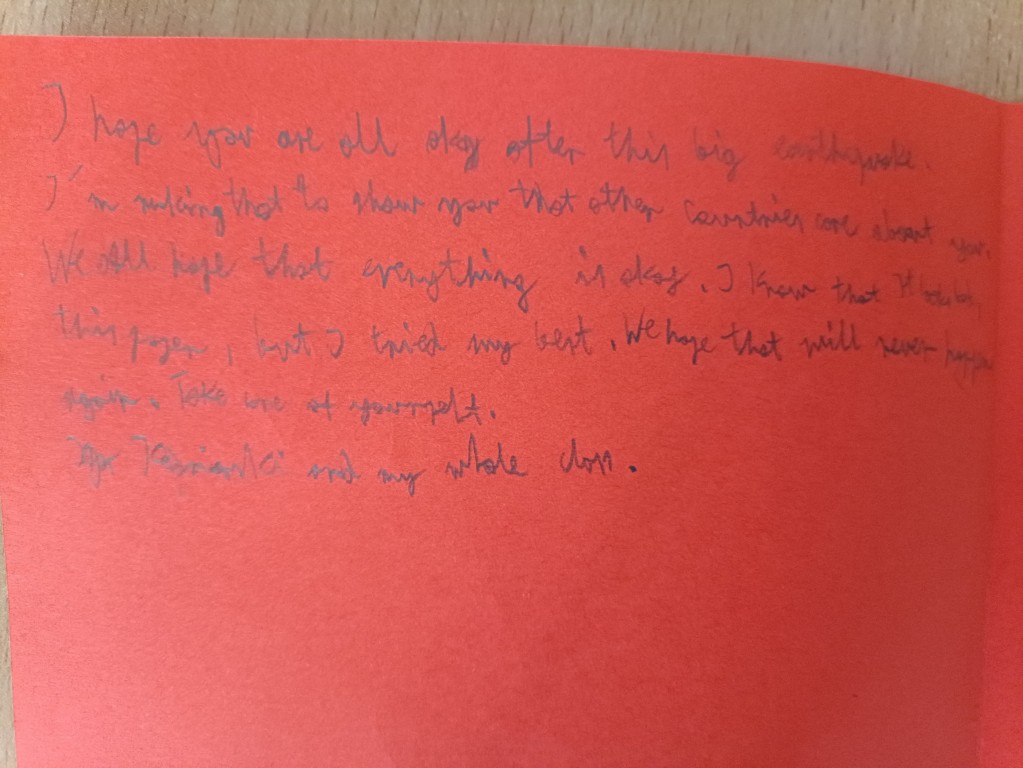 I hope you are all okay after this big earthquake.
I'm making that to show you that other countries care about you.
We All hope that everything is okay. I know that It looks bad,
this paper, but I tried my best. We hope that will never happen
again. Take care of yourself.
and my whole class.